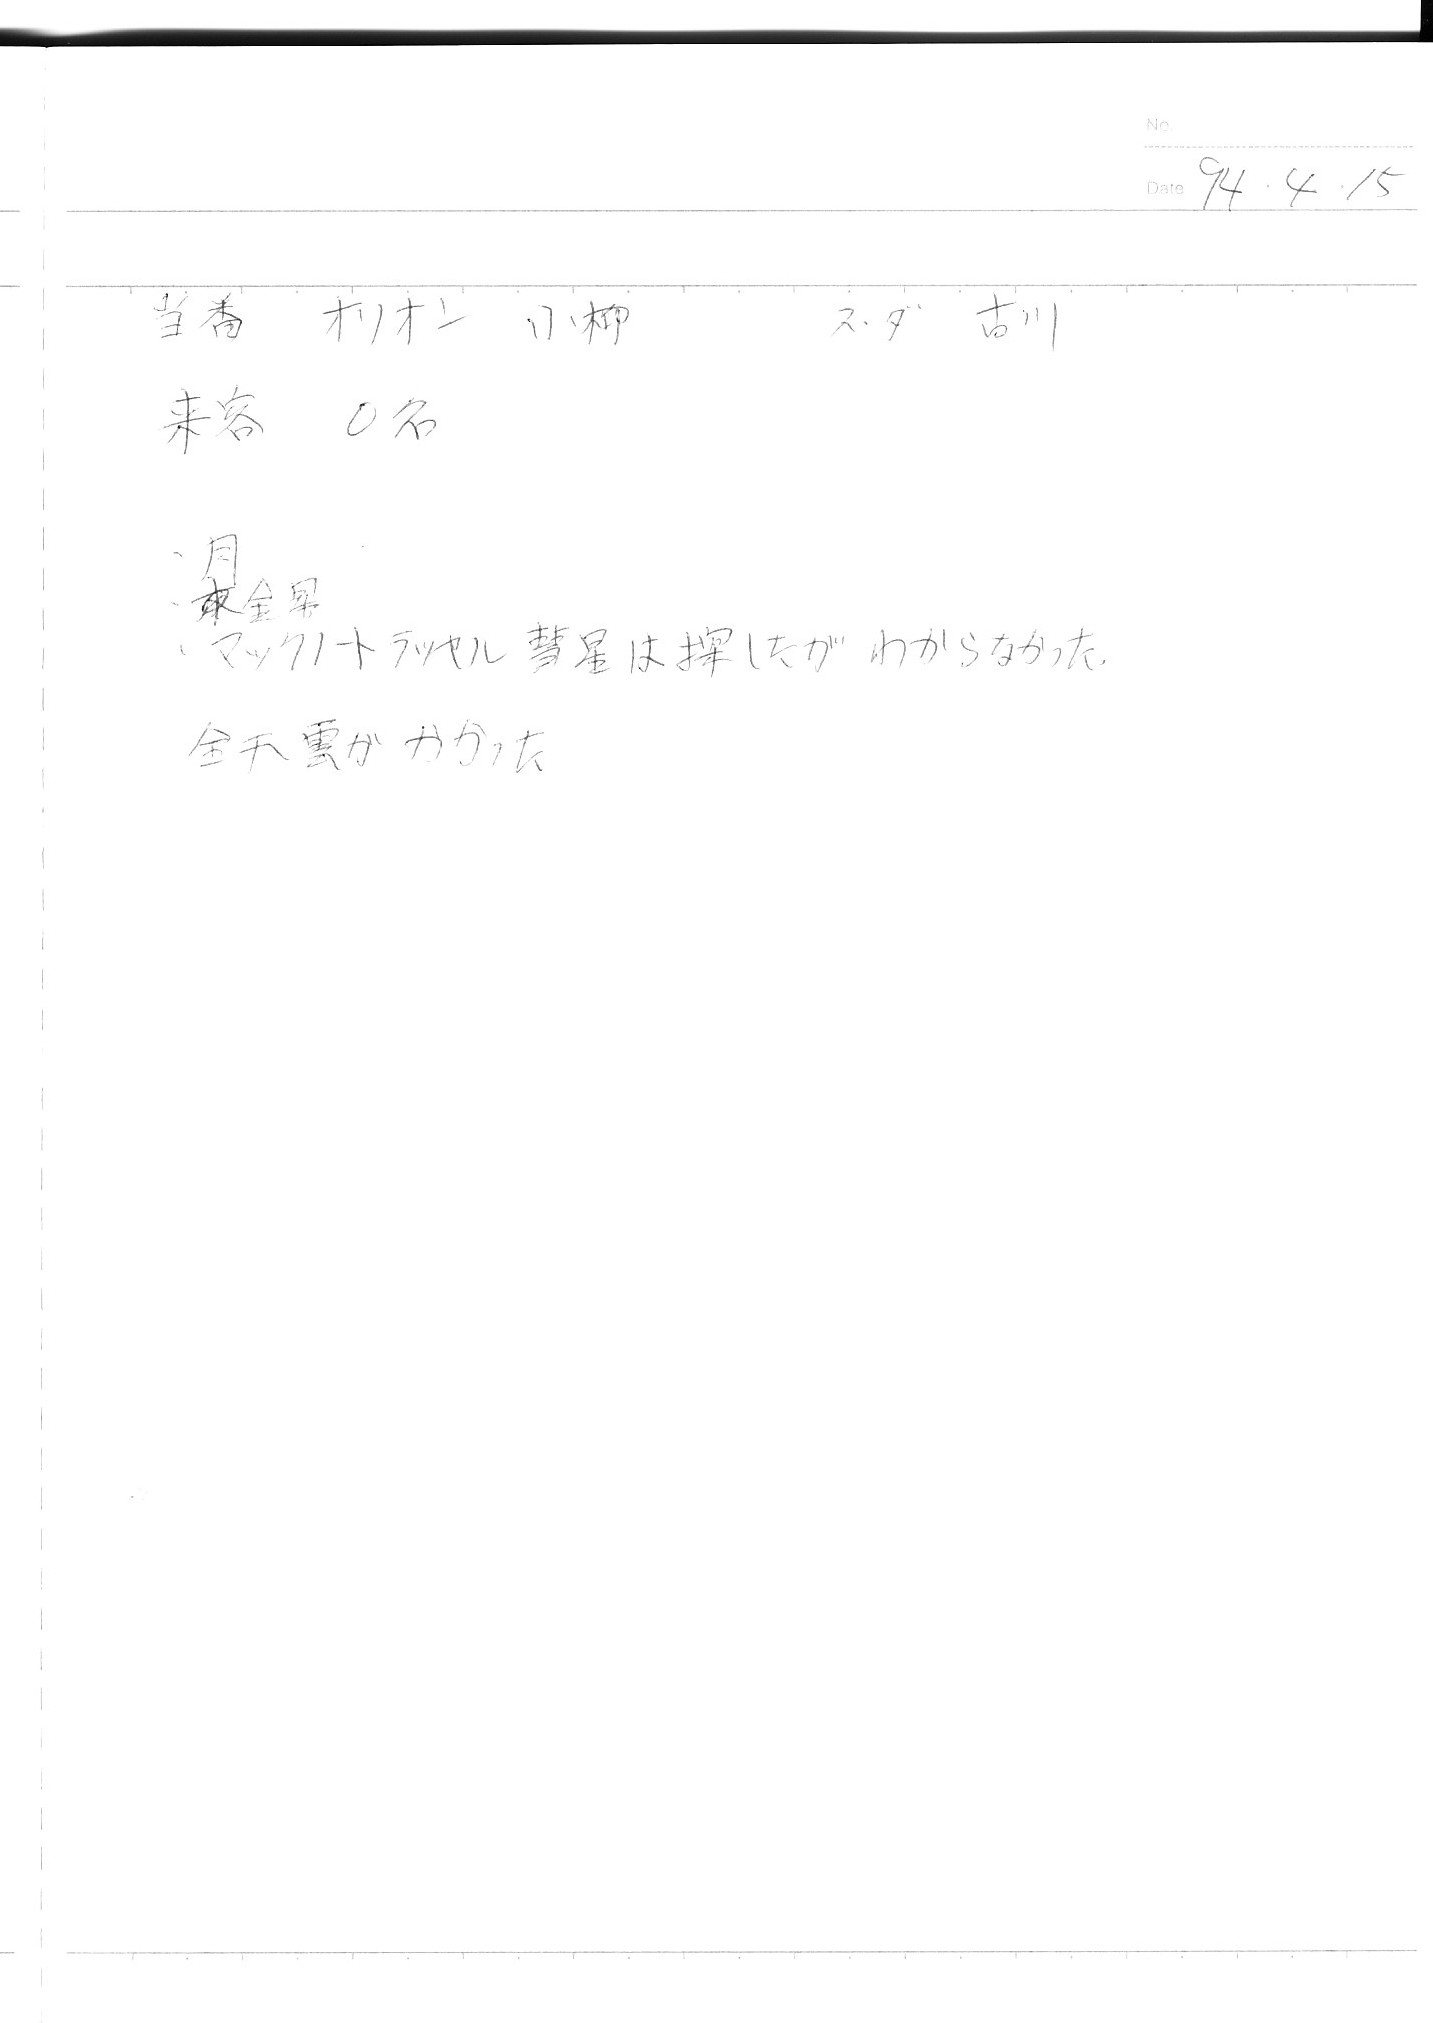 No.
Date 94・4・15
当番 オリオン 小柳 スダ 古川
来客 0名
・月
・金星
・マックノートラッセル彗星は探したが わからなかった.
全天雲がかかった